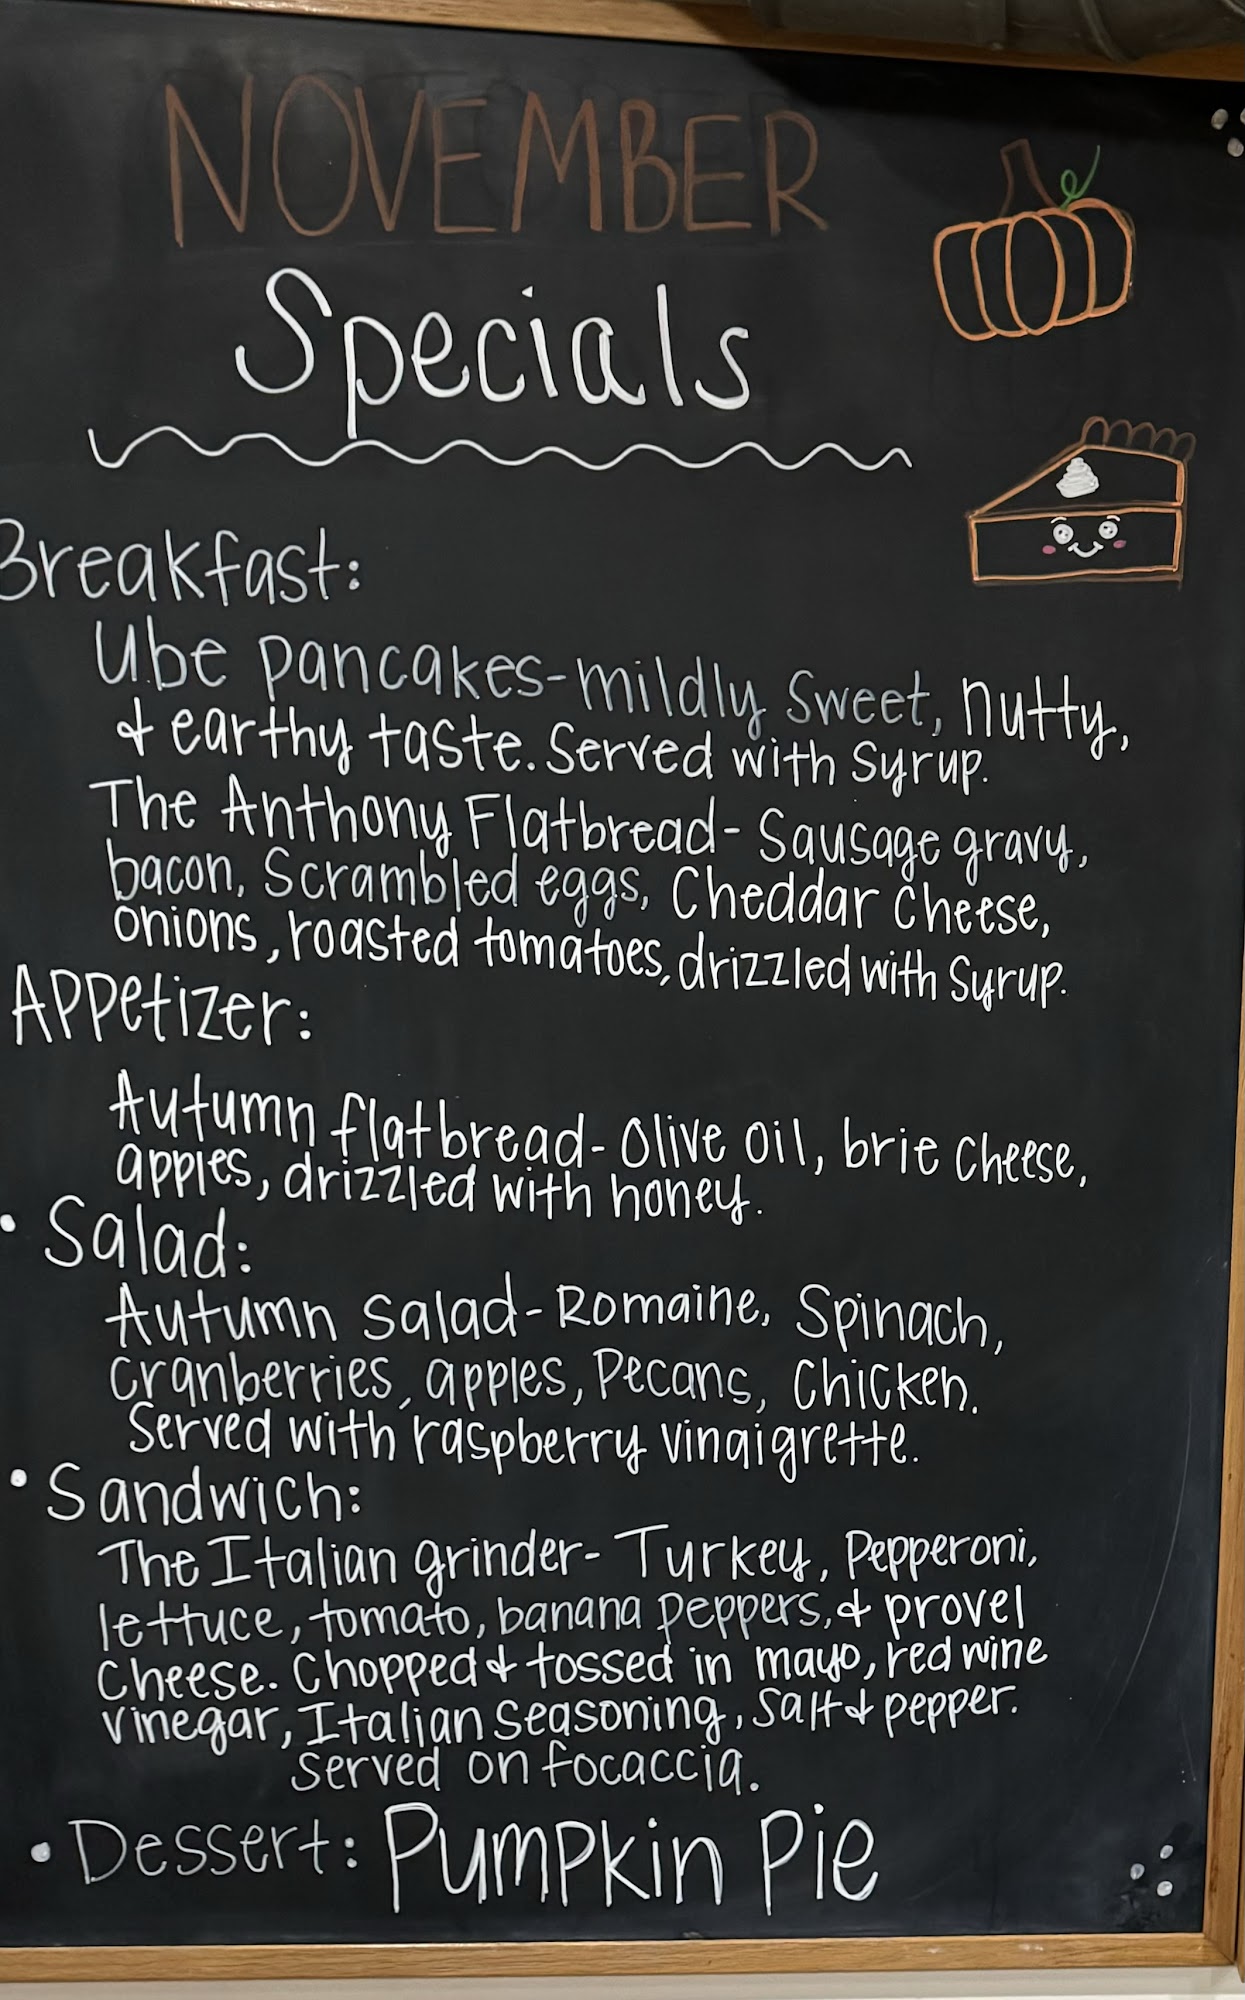 NOVEMBER
Specials
Breakfast:
Ube pancakes-mildly sweet, nutty,
& earthy taste. Served with syrup.
The Anthony Flatbread- Sausage gravy,
bacon, Scrambled eggs, Cheddar Cheese,
onions, roasted tomatoes, drizzled with syrup.
Appetizer:
Autumn flatbread- Olive oil, brie cheese,
apples, drizzled with honey.
• Salad:
Autumn Salad- Romaine, Spinach,
Cranberries, apples, Pecans, Chicken.
Served with raspberry vinaigrette.
• Sandwich:
The Italian grinder- Turkey, Pepperoni,
lettuce, tomato, banana peppers, & provel
Cheese. Chopped & tossed in mayo, red wine
vinegar, Italian seasoning, Salt & pepper.
Served on focaccia.
• Dessert: Pumpkin Pie